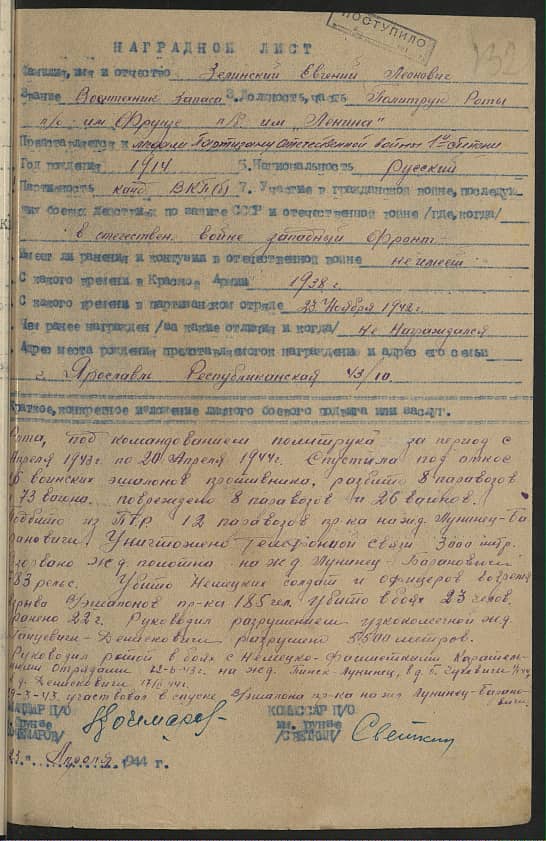 ПОСТУПИЛО
132
НАГРАДНОЙ ЛИСТ
Фамилия, имя и отчество Зелинский Евгений Леонович
Звание Воентехник запаса 3. Должность, часть Политрук Роты
п/о им Фрунзе п/б им "Ленина"
Представляется к медали Партизану отечественной войны 1ой степени
Год рождения 1914 5. Национальность Русский
Партийность канд. ВКП(б) 7. Участие в гражданской войне, последую-
щих боевых действиях по защите СССР и отечественной войне /где, когда/
в отечествен. войне западный фронт
Имеет ли ранения и контузии в отечественной войне не имеет
С какого времени в Красной Армии 1938 г.
С какого времени в партизанском отряде 23 Ноября 1942 г.
Чем ранее награжден /за какие отличия и когда/ Не Награждался
Адрес места рождения представляемого к награждению и адрес его семьи
г. Ярославль Республиканская 43/10.
Краткое, конкретное изложение личного боевого подвига или заслуг.
Рота, под командованием политрука за период с
Апреля 1943 г. по 20 Апреля 1944 г. Спустила под откос
16 воинских эшалонов противника, разбито 8 паравозов
и 73 вагона. повреждено 8 паравозов и 26 вагонов.
Подбито из ПТР 12 паравозов пр-ка на жд. Лунинец-Ба-
рановичи. Уничтожено Телефонной связи 3000 мтр.
Взорвано ж.д полотна на жд Лунинец-Барановичи
783 рельс. Убито Немецких солдат и офицеров во время
взрыва эшалонов пр-ка 185 чел. Убито в боях 23 челов.
Ранено 22 г. Руководил разрушением узкоколейной жд.
Ганцевичи- разрушено 5500 метров.
Руководил ротой в боях с Немецко-фашистскими Каратель-
ными Отрядами 22-6-43г. на жд. Пинск-Лунинец, в д. Б.
в д. 17/ 44г.
19-3-43. участвовал в спуске Эшалона пр-ка на жд Лунинец-Барано-
вичи.
КОМАНДИР П/О КОМИССАР П/О
им. Фрунзе им. Фрунзе
/КОЧМАРОВ/ /СВЕТКИН/ Светкин
23 " Апреля 1944 г.